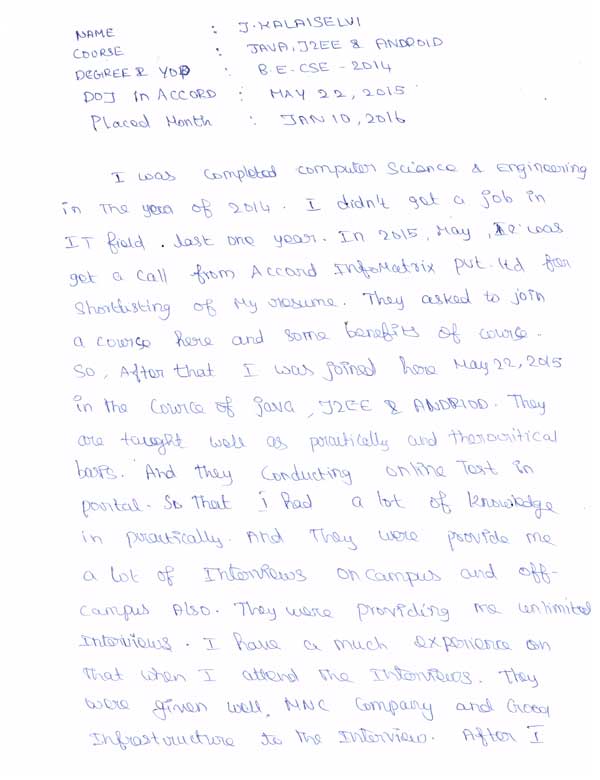 NAME : J. KALAISELVI
COURSE : JAVA, J2EE & ANDROID
DEGREE & YOP : B.E-CSE-2014
DOJ in ACCORD : MAY 22, 2015
Placed Month : JAN 10, 2016
I was completed computer Science & Engineering
in The year of 2014. I didn't get a job in
IT field. last one year. In 2015, May, was
get a call from Accord InfoMatrix pvt. ltd for
Shortlisting of My resume. They asked to join
a course here and some benefits of course.
So, After that I was joined here May 22, 2015
in the Cource of java, J2EE & ANDRIOD. They
are taught well as practically and therocritical
basis. And they Conducting online Test in
portal. So that i had a lot of knowledge
in practically. And They were provide me
a lot of Interviews on campus and off-
campus Also. They were providing me unlimited
Interviews. I have a much experience on
that when I attend the Interviews. They
were given well, MNC Company and Good
Infrastructure to the Interview. After I